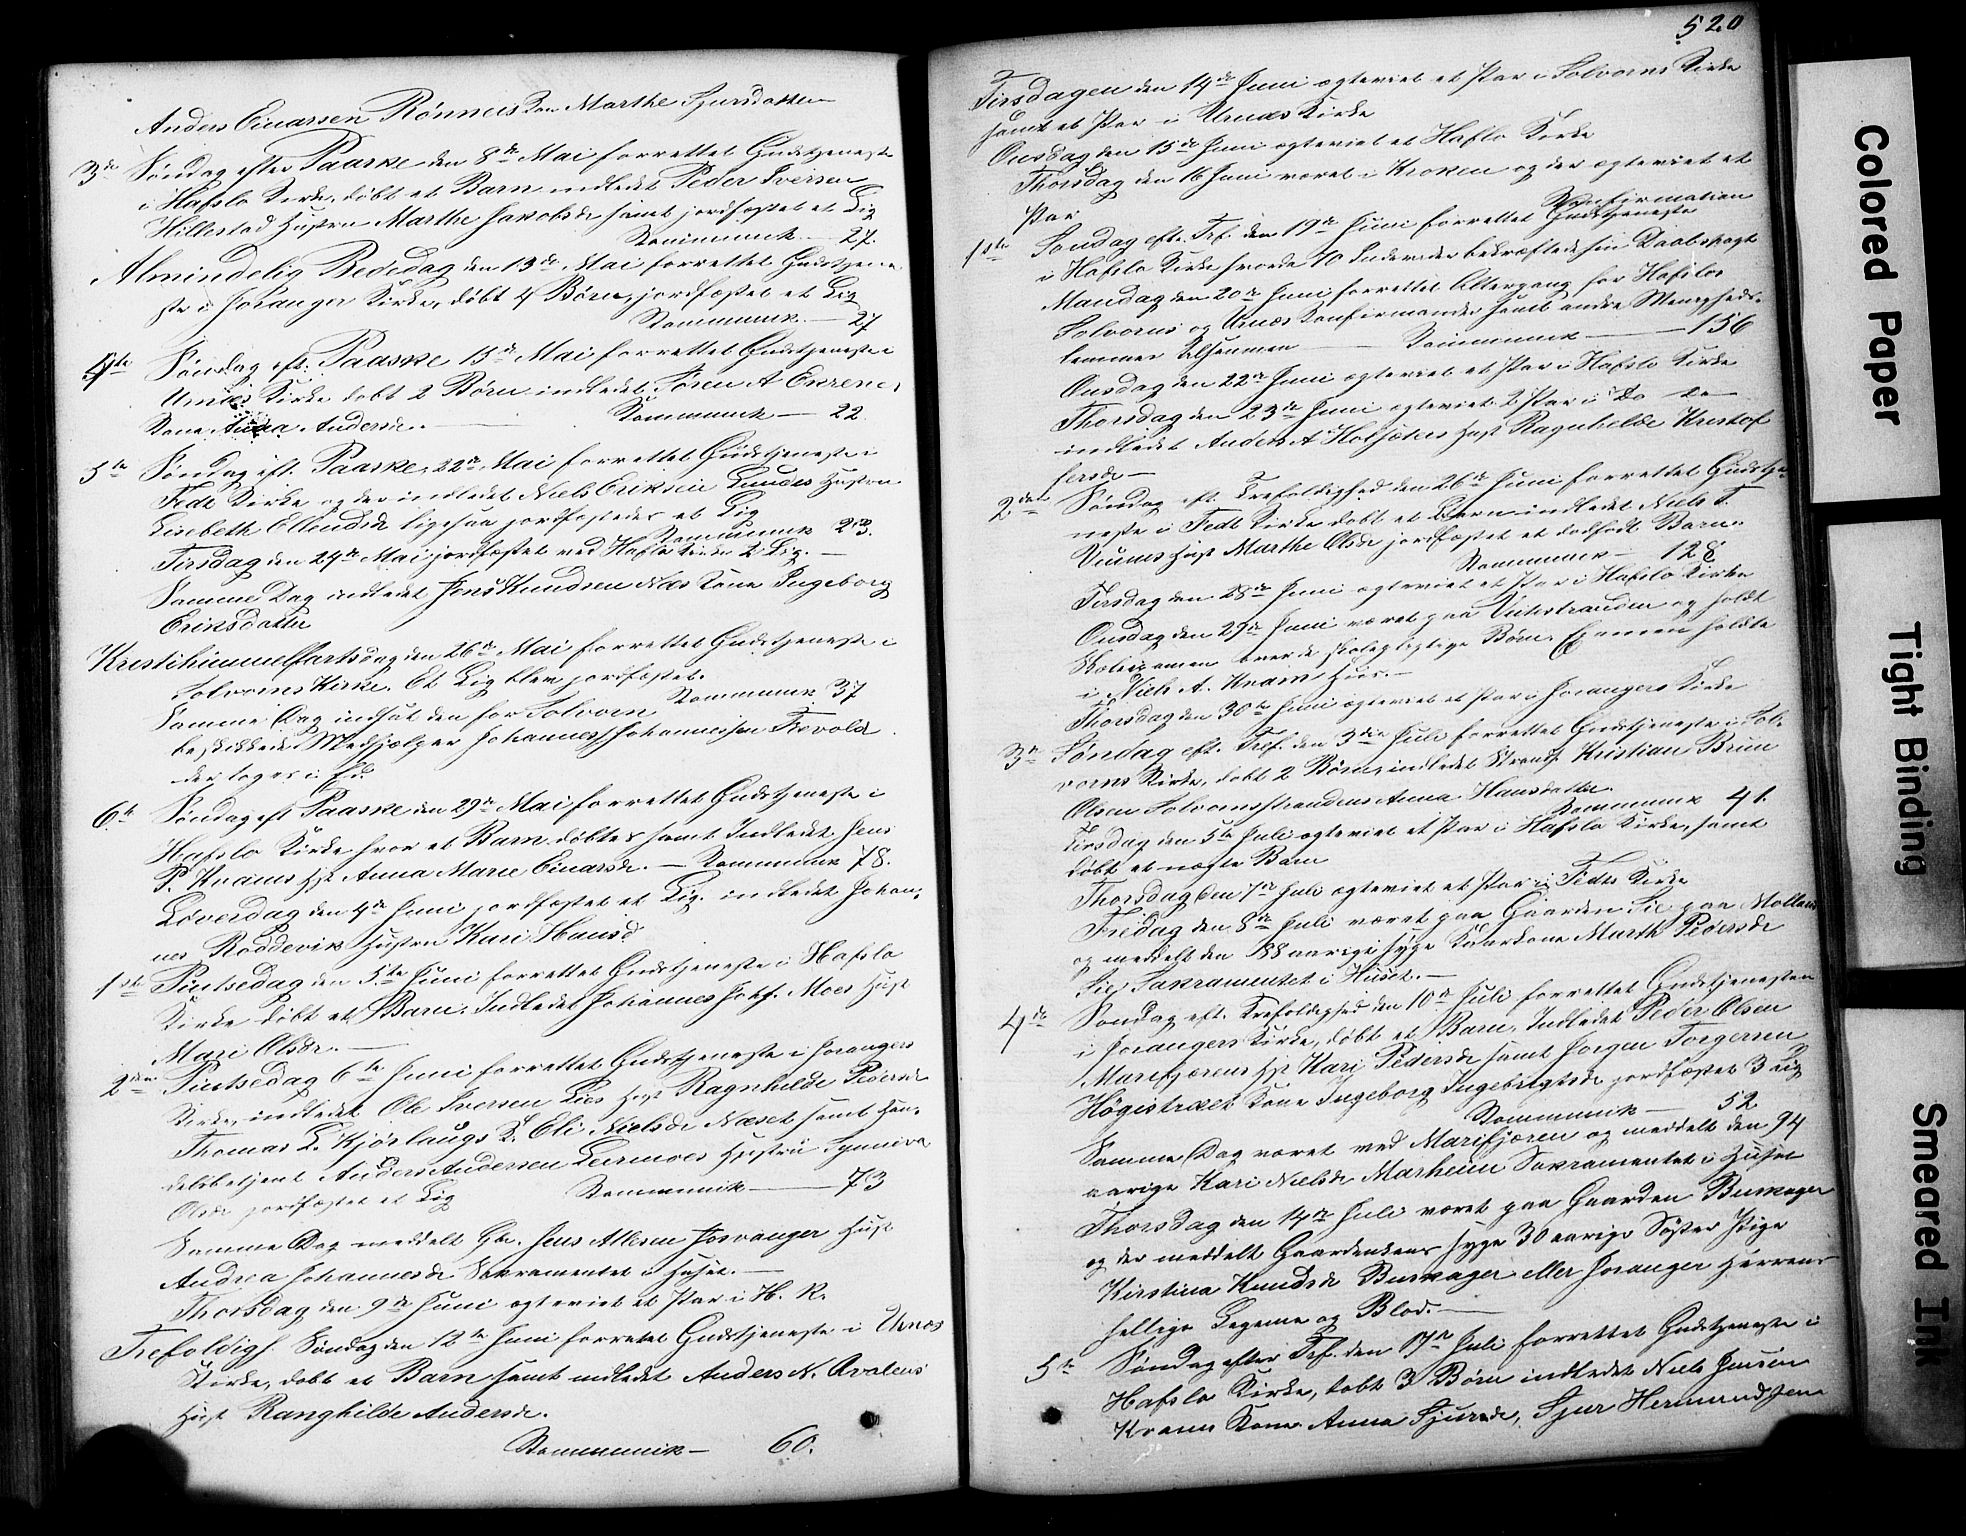 Anders Einarsen Rønneis Kone Marthe Sjursdatter
3de Søndag efter Paaske den 8de Mai forrettet Gudstjeneste
i Hafslo Kirke, døbt et Barn, indledet Peder Iversen
Hillestad Hustru Marthe Jakobsdr samt jordfæstet et Lig
Kommunik. 27.
Almindelig Bededag den 13de Mai forrettet Gudstjene
ste i Joranger Kirke, døbt 4 Børn, jordfæstet et Lig
Kommunik. — 27
4de Søndag eft. Paaske 15de Mai forrettet Gudstjeneste i
Urnes Kirke døbt 2 Børn indledet Søren A Ekrene,
Kone Anna Andersdr. — Kommunik — 22
5te Søndag eft. Paaske, 22de Mai forrettet Gudstjeneste i
Fedt Kirke og der indledet Niels Eriksen Lundes Hustru
Lisebeth Ellendsdr ligesaa jordfæstedes et Lig
Kommunik 23.
Tirsdag den 24de Mai jordfæstet ved Hafslo Kirke 2 Lig. —
Samme Dag indledet Jens Knudsen Næs Kone Ingeborg
Eriksdatter
Kristihimmelfartsdag den 26de Mai forrettet Gudstjeneste i
Solvorns Kirke. Et Lig blev jordfæstet.
Kommunik 37
Samme Dag indsat den for Solvorn
beskikkede Medhjælper Johannes Johannessen Trevold
der toges i Ed.
6te Søndag eft Paaske den 29de Mai forrettet Gudstjeneste i
Hafslo Kirke hvor et Barn døbtes samt Indledet Jens
P. Kvams Hst Anna Marie Einarsdr. — Kommunik 78.
Løverdag den 4de Juni jordfæstet et Lig. indledet Johan-
nes Røddevik Hustru Kari Hansd.
1ste Pintsedag den 5te Juni forrettet Gudstjeneste i Hafslo
Kirke døbt et Barn. Indledet Johannes Johs. Moes Hust
Mari Olsdr. —
2den Pintsedag 6te Juni forrettet Gudstjeneste i Jorangers
Kirke, indledet Ole Iversen Lies Hust Ragnhilde Pedersdr
Thomas L. Kjørlaugs K. Eli Nielsdr Næset samt Han-
delsbetjent Anders Andersen Leermoes Hustru Synneva
Olsdr jordfæstet et Lig Kommunik — 73
Samme Dag meddelt Gbr. Jens Allesen Joranger Hust
Andrea Johannesdr Sakramentet i Huset. —
Thorsdag den 9de Juni ægteviet et Par i H. K.
Trefoldigh. Søndag den 12te Juni forrettet Gudstjeneste i Urnæs
Kirke, døbt et Barn samt indledet Anders N. Qvalens
Hust Ranghilde Andersdr.
Kommunik — 60.
520
Tirsdagen den 14de Juni ægteviet et Par i Solvorns Kirke
samt et Par i Urnæs Kirke
Onsdag den 15de Juni ægteviet et Hafslo Kirke
Thorsdag den 16 Juni været i Kroken og der ægteviet et
Par
Konfirmation
1ste Søndag eft. Tref. den 19de Juni forrettet Gudstjeneste
i Hafslo Kirke hvorde 10 Individer bekræftede sin Daabspagt
Mandag den 20de Juni forrettet Altergang for Hafslos
Solvorns og Urnæs Konfirmander samt andre Menigheds-
lemmer Tilsammen — Kommunik — 156
Onsdag den 22de Juni ægteviet et Par i Hafslo Kirke
Thorsdag den 23de Juni ægteviet 2 Par i Do
indledet Anders A Holsæters Hust Ragnhilde Kristof
fersdr —
2den Søndag eft. Trefoldighed den 26de Juni forrettet Gudstje-
neste i Fedt Kirke døbt et Barn indledet Niels T.
Hust Marthe Olsdr jordfæstet et dødfødt Barn.
Kommunik — 128
Tirsdag den 28de Juni ægteviet et Par i Hafslo Kirke
Onsdag den 29de Juni været paa Veitestranden og holdt
Skoleexamen over de skolepligtige Børn. Examen holdte
i Niels A. Kvam Huus. —
Thorsdag den 30te Juni ægteviet et Par i Jorangers Kirke
3de Søndag eft. Tref. den 3die Juli forrettet Gudstjeneste i Sol-
vorns Kirke, døbt 2 Børn, indledet Kristian Bruun
Olsen Solvornsstranden Anna Hansdatter.
Kommunik 41.
Tirsdag den 5te Juli ægteviet et Par i Hafslo Kirke, samt
døbt et uægte Barn
Thorsdag den 7de Juli ægteviet et Par i Fedts Kirke
Fredag den 8de Juli været paa Gaarden Sie paa Mollan
og meddelt den 88 aarige syge Kaarkone Marth Pedersdr
Sie, Sakramentet i Huset. —
4de Søndag eft. Trefoldighed den 10de Juli forrettet Gudstjenesten
i Jorangers Kirke, døbt et Barn. Indledet Peder Olsen
Marifjærens Hst Kari Pedersdr samt Jørgen Torgersen
Høgistræet Kone Ingeborg Ingebrigtsdr jordfæstet 3 Lig
Kommunik — 52
Samme Dag været ved Marifjæren og meddelt den 94
aarige Kari Nielsdr Marheim Sakramentet i Huset
Thorsdag den 14de Juli været paa Gaarden Bumager
og der meddelt Gaardenkens syge 30 aarige Søster Pige
Kirstina Knudsdr Bumager eller Joranger Herrens
hellige Legeme og Blod. —
5te Søndag efter Tref. den 17de Juli forrettet Gudstjeneste i
Hafslo Kirke, døbt 3 Børn indledet Niels Jensen
Kvams Kone Anna Sjursdr, Sjur Hermundsens
Colored Paper
Tight Binding
Smeared Ink